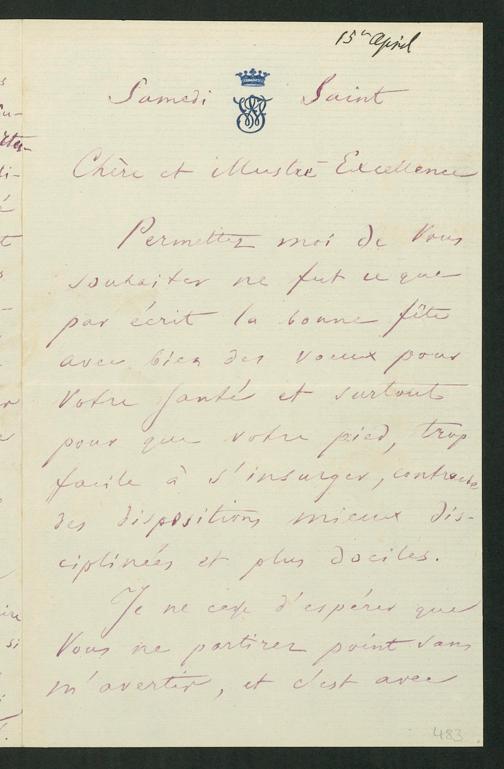 15 April
Samedi Saint
Chère et illustre Excellence
Permettez moi de Vous
souhaiter ne fut ce que
par écrit la bonne fête
avec bien des voeux pour
Votre Santé et surtout
pour que votre pied, trop
facile à s'insurger, contracte
des dispositions mieux dis-
ciplinées et plus dociles.
Je ne cesse d'espérer que
Vous ne partirez point sans
m'avertir, et c'est avec
483